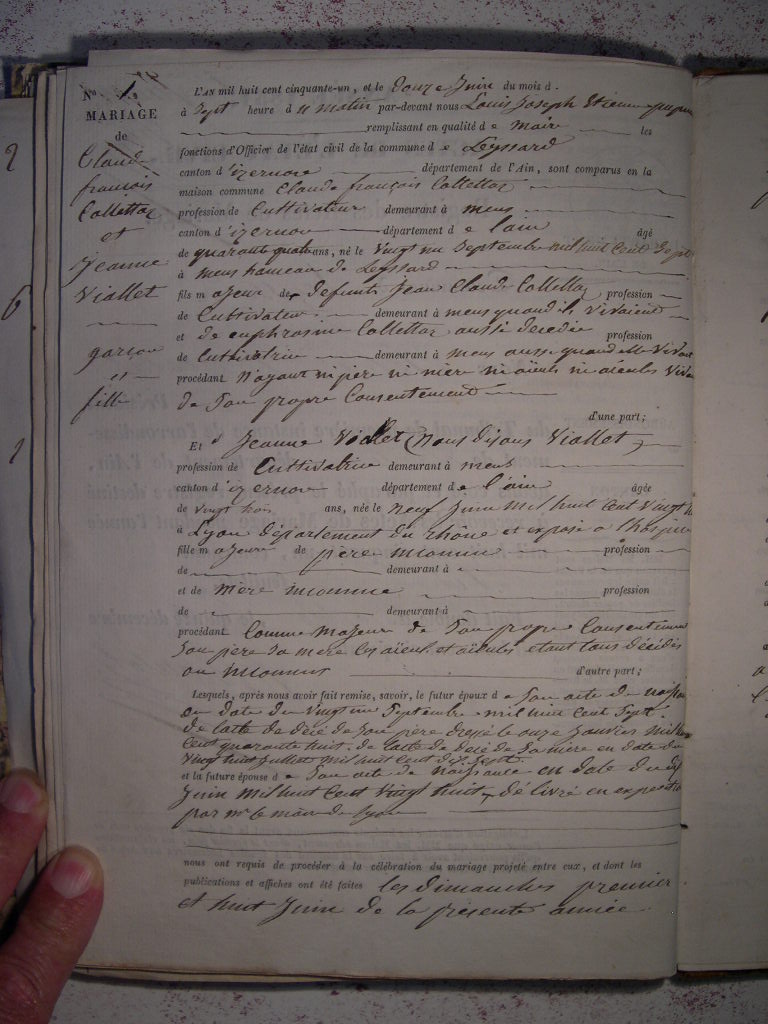 2
6
1
N° 1.
MARIAGE
de
Claude
françois
Collettaz
et
Jeanne
Viallet
garçon
et
fille
L'AN mil huit cent cinquante-un, et le Douze Juin du mois d
à Sept heure d u matin par-devant nous Louis Joseph Etienne
remplissant en qualité d e maire les
fonctions d'Officier de l'état civil de la commune d e Leyssard
canton d'izernore département de l'Ain, sont comparus en la
maison commune Claude françois Collettaz
profession de Cultivateur demeurant à mens
canton d'izernore département d e l'ain âgé
de quarante quatre ans, né le vingt un Septembre mil huit cent Sept
à mens hameau de Leyssard
fils m ajeur de Defunts Jean Claude Collettaz profession
de Cultivateur demeurant à mens quand il vivaient
et de euphrosine Collettaz aussi décédée profession
de Cultivatrice demeurant à mens aussi quand elle vivait
procédant N'ayant ni père ni mère ni aïeuls ni aïeules
de Son propre Consentement
d'une part;
Et d Jeanne Viallet (nous disons Viallet)
profession de Cultivatrice demeurant à mens
canton d'izernore département d e l'ain âgée
de vingt trois ans, née le neuf Juin mil huit cent vingt
à Lyon département du rhône et exposé a l'hospice
fille m ajeure de père inconnu profession
de demeurant à
et de mère inconnue profession
de demeurant à
procédant Comme majeur de Son propre Consentement
Son père Sa mère les aïeuls et aïeules étant tous décédés
ou inconnus d'autre part;
Lesquels, après nous avoir fait remise, savoir, le futur époux d e Son acte de
en date du vingt un Septembre mil huit Cent Sept.
de l'acte de décé de Son père dressé le onze Janvier mil
Cent quarante huit. de l'acte de décé de Sa mère en date du
vingt huit Juillet mil huit cent dix Sept.
et la future épouse d e Son acte de naissance en date du dix
Juin mil huit Cent vingt huit, délivré en
par mr le maire de Lyon
nous ont requis de procéder à la célébration du mariage projeté entre eux, et dont les
publications et affiches ont été faites les dimanches premier
et huit Juin de la présente année